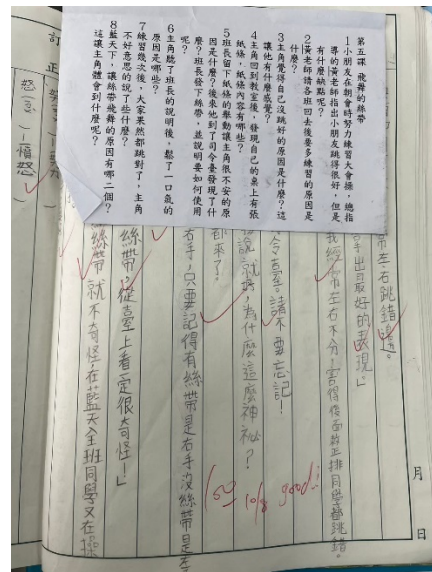 第五課 飛舞的絲帶
1小朋友在朝會時努力練習大會操,總指
導的黃老師指出小朋友跳得很好,但是
有什麼缺點呢?
2黃老師請各班回去後要多練習的原因是
什麼?
3主角覺得自己沒跳好的原因是什麼?這
讓他有什麼感覺?
4主角回到教室後,發現自己的桌上有張
紙條,紙條內容有哪些?
5班長留下紙條的舉動讓主角很不安的原
因是什麼?後來他到了司令臺發現了什
麼?班長發下絲帶,並說明要如何使用
呢?
6主角聽了班長的說明後,鬆了一口氣的
原因是哪些?
7練習幾次後,大家果然都跳對了,主角
不好意思的說了些什麼?
8藍天下,讓絲帶飛舞的原因有哪二個?
這讓主角體會到什麼呢?
帶左、右跳錯邊。
手出最好的表現。」
我經常左右不分,害得後面整排同學都跳錯。
令臺。請不要忘記!
說就好,為什麼這麼神祕?
都來了。
右手,只要記得有絲帶是右手沒絲帶是左
絲帶,從臺上看一定很奇怪!」
絲帶就不奇怪,在藍天全班同學又在操
訂正
怒氣(憤怒)
100
10/8 good!
月 日